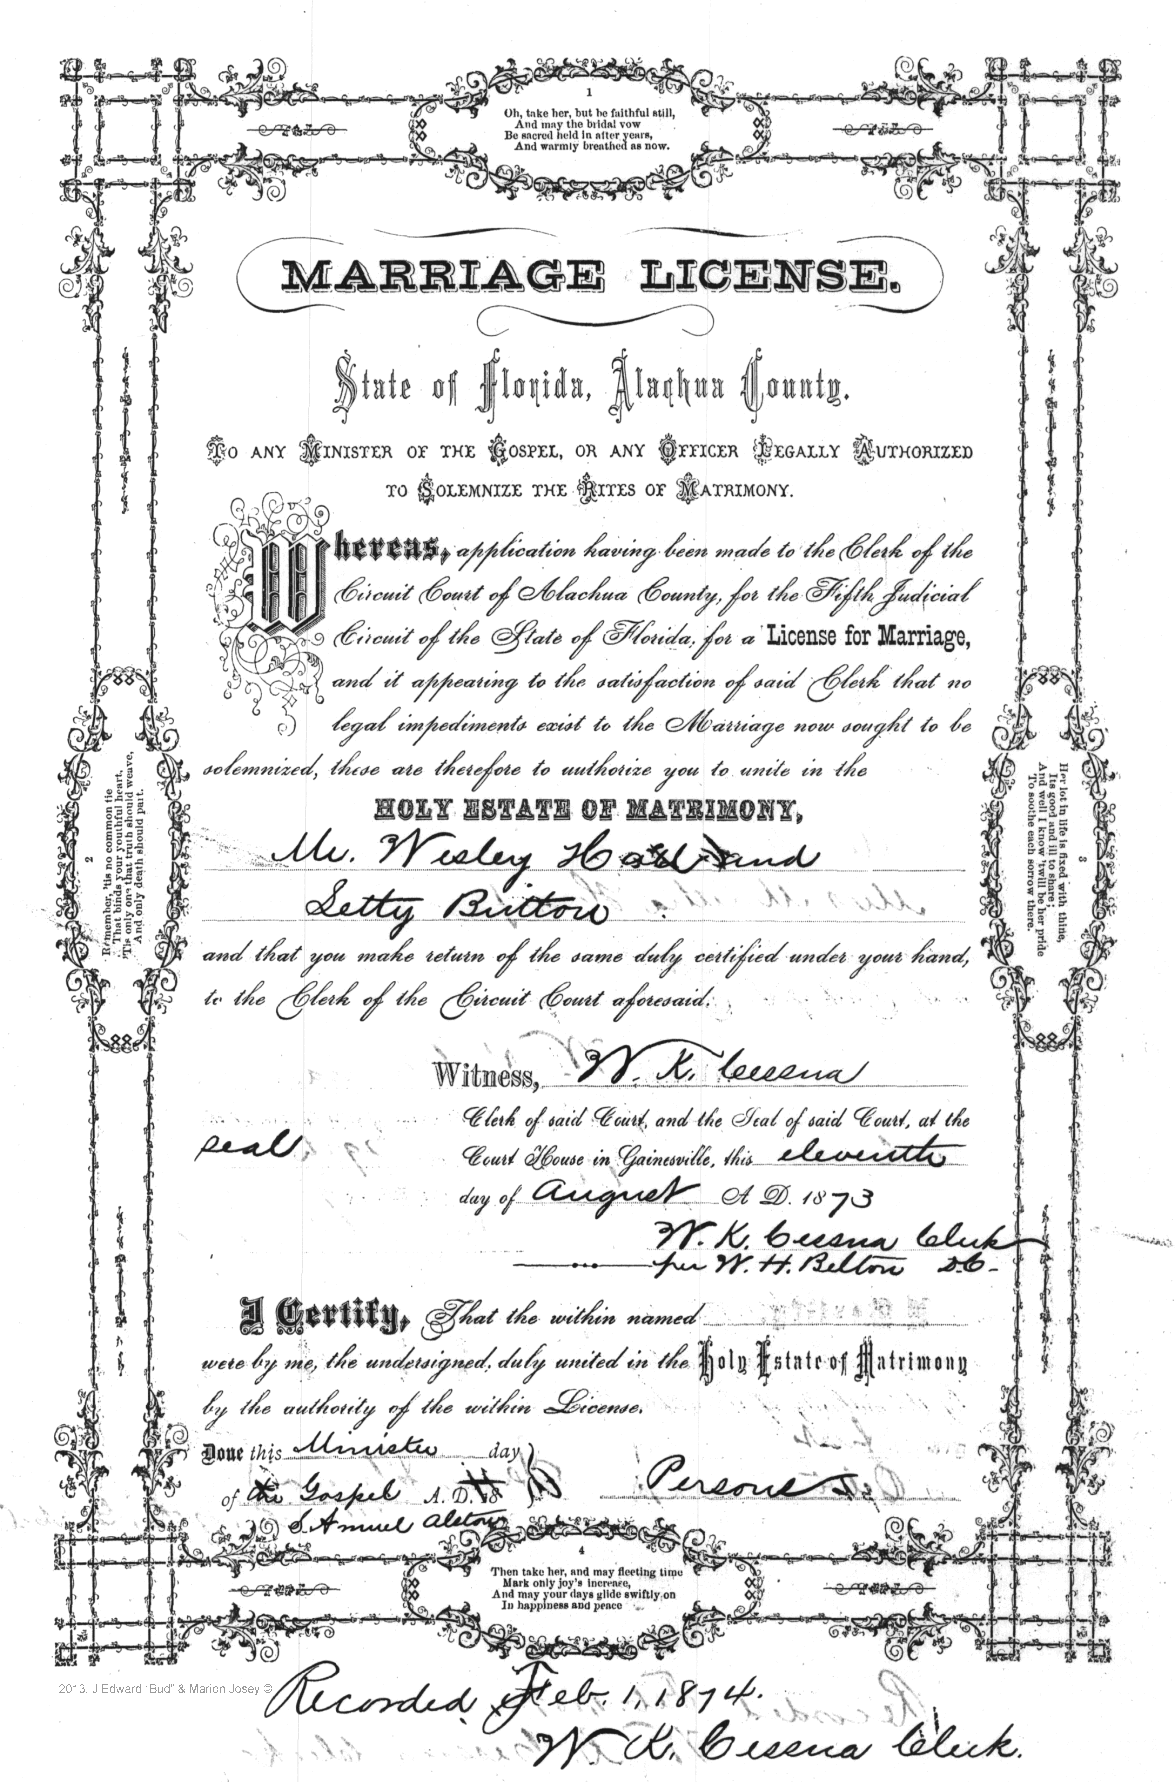 1
Oh, take her, but be faithful still,
And may the bridal vow
Be sacred held in after years,
And warmly breathed as now.
MARRIAGE LICENSE.
State of Florida, Alachua County.
To any Minister of the Gospel, or any Officer Legally Authorized
to Solemnize the Rites of Matrimony.
Whereas, application having been made to the Clerk of the
Circuit Court of Alachua County, for the Fifth Judicial
Circuit of the State of Florida, for a License for Marriage,
and it appearing to the satisfaction of said Clerk that no
legal impediments exist to the Marriage now sought to be
solemnized, these are therefore to authorize you to unite in the
HOLY ESTATE OF MATRIMONY,
Mr. Wesley and
Setty Britton
and that you make return of the same duly certified under your hand,
to the Clerk of the Circuit Court aforesaid.
2
Remember, 'tis no common tie
That binds your youthful heart,
'Tis only one that truth should weave,
And only death should part.
3
Her lot in life is fixed with thine,
Its good and ill to share;
And well I know 'twill be her pride
To soothe each sorrow there.
Witness, W. K. Cessna
Clerk of said Court, and the Seal of said Court, at the
seal
Court House in Gainesville, this eleventh
day of August A D. 1873
W. K. Cessna Clerk
per W. H. Belton D.C.
I Certify, That the within named
were by me, the undersigned, duly united in the Holy Estate of Matrimony
by the authority of the within License.
Done this Minister day
of the Gospel A. D. 18
Persons
Samuel Alston
4
Then take her, and may fleeting time
Mark only joy's increase,
And may your days glide swiftly on
In happiness and peace
2013. J Edward "Bud" & Marion Josey ©
Recorded Feb. 1, 1874.
W. K. Cessna Clerk.